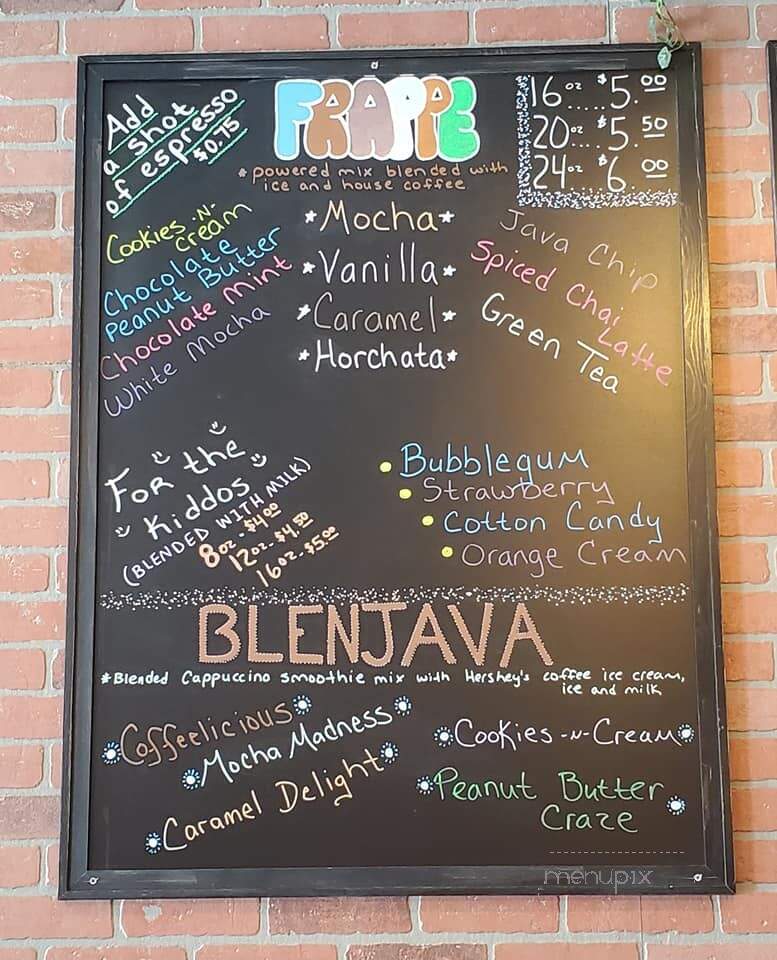 Add
a shot
of espresso
$0.75
FRAPPE
*powered mix blended with
ice and house coffee
16oz.....$5.00
20oz...$5.50
24oz $6.00
Cookies-N-
Cream
Chocolate
Peanut Butter
Chocolate Mint
White Mocha
*Mocha*
*Vanilla*
*Caramel*
*Horchata*
Java Chip
Spiced Chai
Latte
Green Tea
For the
Kiddos
(BLENDED WITH MILK)
8oz-$4.00
12oz-$4.50
16oz-$5.00
• Bubblegum
• Strawberry
• Cotton Candy
• Orange Cream
BLENJAVA
*Blended Cappuccino smoothie mix with Hershey's coffee ice cream,
ice and milk
Coffeelicious
Mocha Madness
Caramel Delight
Cookies-N-Cream
Peanut Butter
Craze
menupix